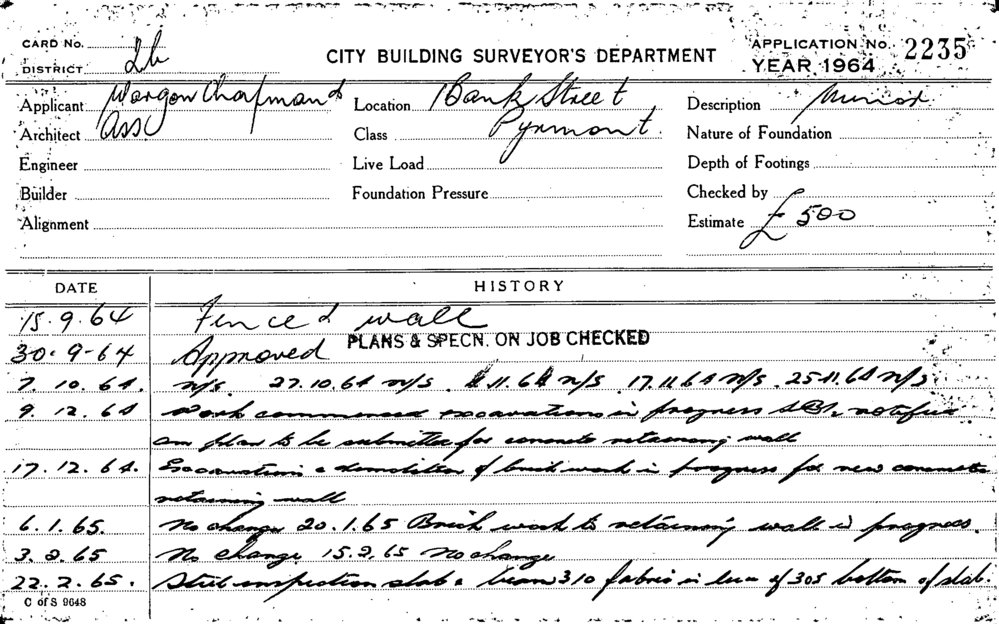 CARD No.
DISTRICT 2b
CITY BUILDING SURVEYOR'S DEPARTMENT
APPLICATION No. 2235
YEAR 1964
Applicant Wargon Chapman &
Architect Ass
Engineer
Builder
Alignment
Location Bank Street
Class Pyrmont.
Live Load
Foundation Pressure
Description Minor
Nature of Foundation
Depth of Footings
Checked by
Estimate £ 500
DATE HISTORY
15.9.64 Fence & wall
PLANS & SPECN. ON JOB CHECKED
30.9-64 Approved
7.10.64. n/s. 27.10.64 n/s. 11.64 n/s 17.11.64 n/s. 25.11.64 n/s.
9.12.64 Work commenced excavations in progress notified
am plan to be submitted for concrete retaining wall
17.12.64. Excavation & demolition of brick work in progress for new concrete
retaining wall
6.1.65. No change 20.1.65 Brick work to retaining wall in progress.
3.2.65 No change 15.2.65 No change
22.2.65. Steel inspection slab & beam 310 fabric in lieu of 305 bottom of slab.
C of S 9648